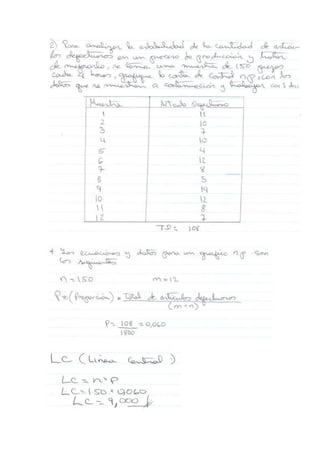 2) Para analizar la estabilidad de la cantidad de artícu-
los defectuosos en un proceso de producción y tratar
de mejorarlo, se toma una muestra de 150 piezas
cada 2 horas, grafique la carta de control np, con los
datos que se muestran a continuación y trabajar con 3 ds.
Muestra Nº art. defectuoso
1 11
2 10
3 7
4 10
5 4
6 12
7 8
8 5
9 14
10 12
11 8
12 7
T.D = 108
* Las ecuaciones y datos para un grafico np son
los siguientes
n = 150 m = 12
P = (Proporción) = Total de artículos defectuosos
(m * n)
P = 108 = 0,060
1800
LC (Línea Central)
LC = n * P
LC = 150 * 0,060
LC = 9,000